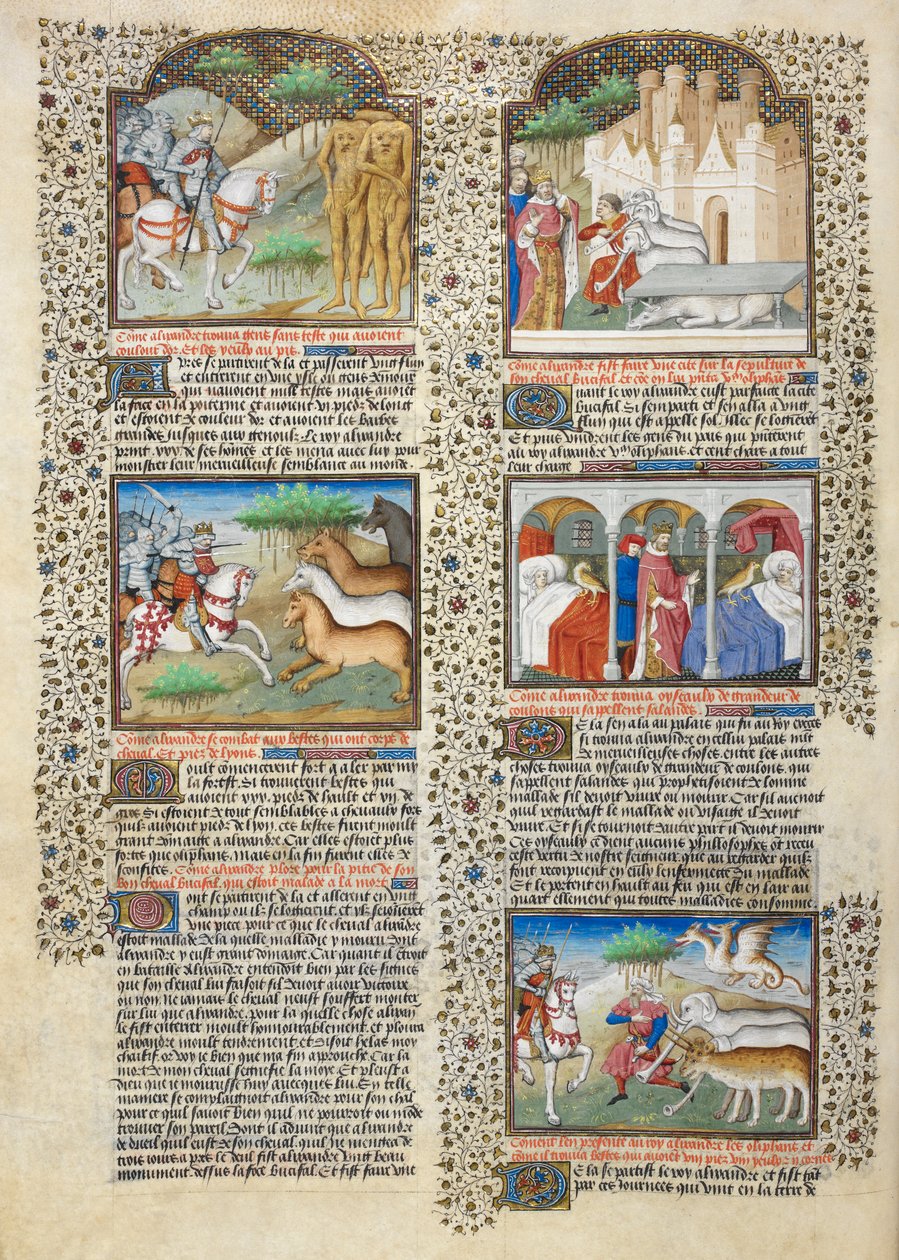 Cōme alixandre trouva gens sans teste qui avoient
couleur dor. Et les yeulx au pis.
Apres se partirent de la et passerent ung flun
et entrerent en une ysle ou gens demeurēt
qui navoient nulles testes mais avoient
la face en la poiterine et avoient vi piedz de lont
et estoient de couleur dor et avoient les barbes
grandes jusques aux genoulx. Le roy alixandre
print xxx de ses homes et les mena avec luy pour
monstrer leur merveilleuse semblance au monde
Cōme alixandre se combat aux bestes qui ont corps de
cheval. Et piez de lyons.
Moult cōmencerent fort a aler par my
la forest. Si trouverent bestes qui
avoient xxx. piedz de hault et xii de
gros Si estoient de tout semblables a chevaulx fors
quilz avoient piedz de lyon. Ces bestes firent moult
grant dōmaige a alixandre. Car elles estoiēt plus
fortes que oliphans. Mais en la fin furent elles de
sconfites. Cōme alixandre plore pour la pitie de son
bon cheval bucifal. qui estoit malade a la mort
Dont se partirent de la et allerent en ung
champ ou ilz se logierent. et ylz sejornerēt
une piece pour ce que le cheval alixandre
estoit mallade de la quelle malladie y mourut dont
alixandre y eust grant domaige. Car quant il estoit
en bataille alixandre entendoit bien par les signes
que son cheval lui faisoit sil devoit avoir victoire
ou non. Ne jamais le cheval neust souffert monter
sur lui que alixandre. pour la quelle chose alixan
le fist enterrer moult honnourablement. et ploura
alixandre moult tendrement et disoit helas moy
chaitif. or voy ie bien que ma fin aproche. Car la
mort de mon cheval segnefie la moye. Et pleust a
dieu que ie mourusse huy avecques lui. En telle
maniere se complaignoit alixandre pour son chal
pour ce quil savoit bien quil ne pourroit ou mōde
trouver son pareil. Dont il advint que alixandre
de dueil quil eust de son cheval. quil ne mengea de
trois iours. apres le deul fist alixandre ung beau
monument dessus la fosse bucifal. Et fist faire une
Cōme alixandre fist faire une cite sur la sepulture de
son cheval bucifal. et cōe on lui pnta vc oliphās
Quant le roy alixandre eust parfaite la cite
bucifal. Si sen parti et sen alla a ung
flun qui est appelle sol. Illec se logierēt
Et puis vindrent les gens du pais qui pnterent
au roy alixandre vc oliphans. et cent chars a tout
leur charge
Cōme alixandre trouva oyseaulx de grandeur de
coulons qui sapellent salandes.
De la sen ala au palais qui fu au roy xerces
Si trouva alixandre en cellui palais mlt
de merveilleuses choses. entre les autres
choses trouva oyseaulx de grandeur de coulons. qui
sapellent salandes qui prophetisoient de lomme
mallade sil devoit vivre ou mourir. Car sil avenoit
quil regardast le mallade ou visaige il devoit
vivre. Et si se tournoit dautre part il devoit mourir
Ces oyseaulx ce dient aucuns philosophes ont receu
ceste vertu de nostre seigneur que au regarder quilz
font recoipvent en eulx lenfermete du mallade
Et le portent en hault au feu qui est en lair au
quart ellement qui toutes malladies consomme
Coment len presente au roy alixandre les oliphans et
cōme il trouva bestes qui avoiēt viii piez viii yeulx ii cornes
De la se partist le roy alixandre et fist tāt
par ces journees qui vint en la terre de